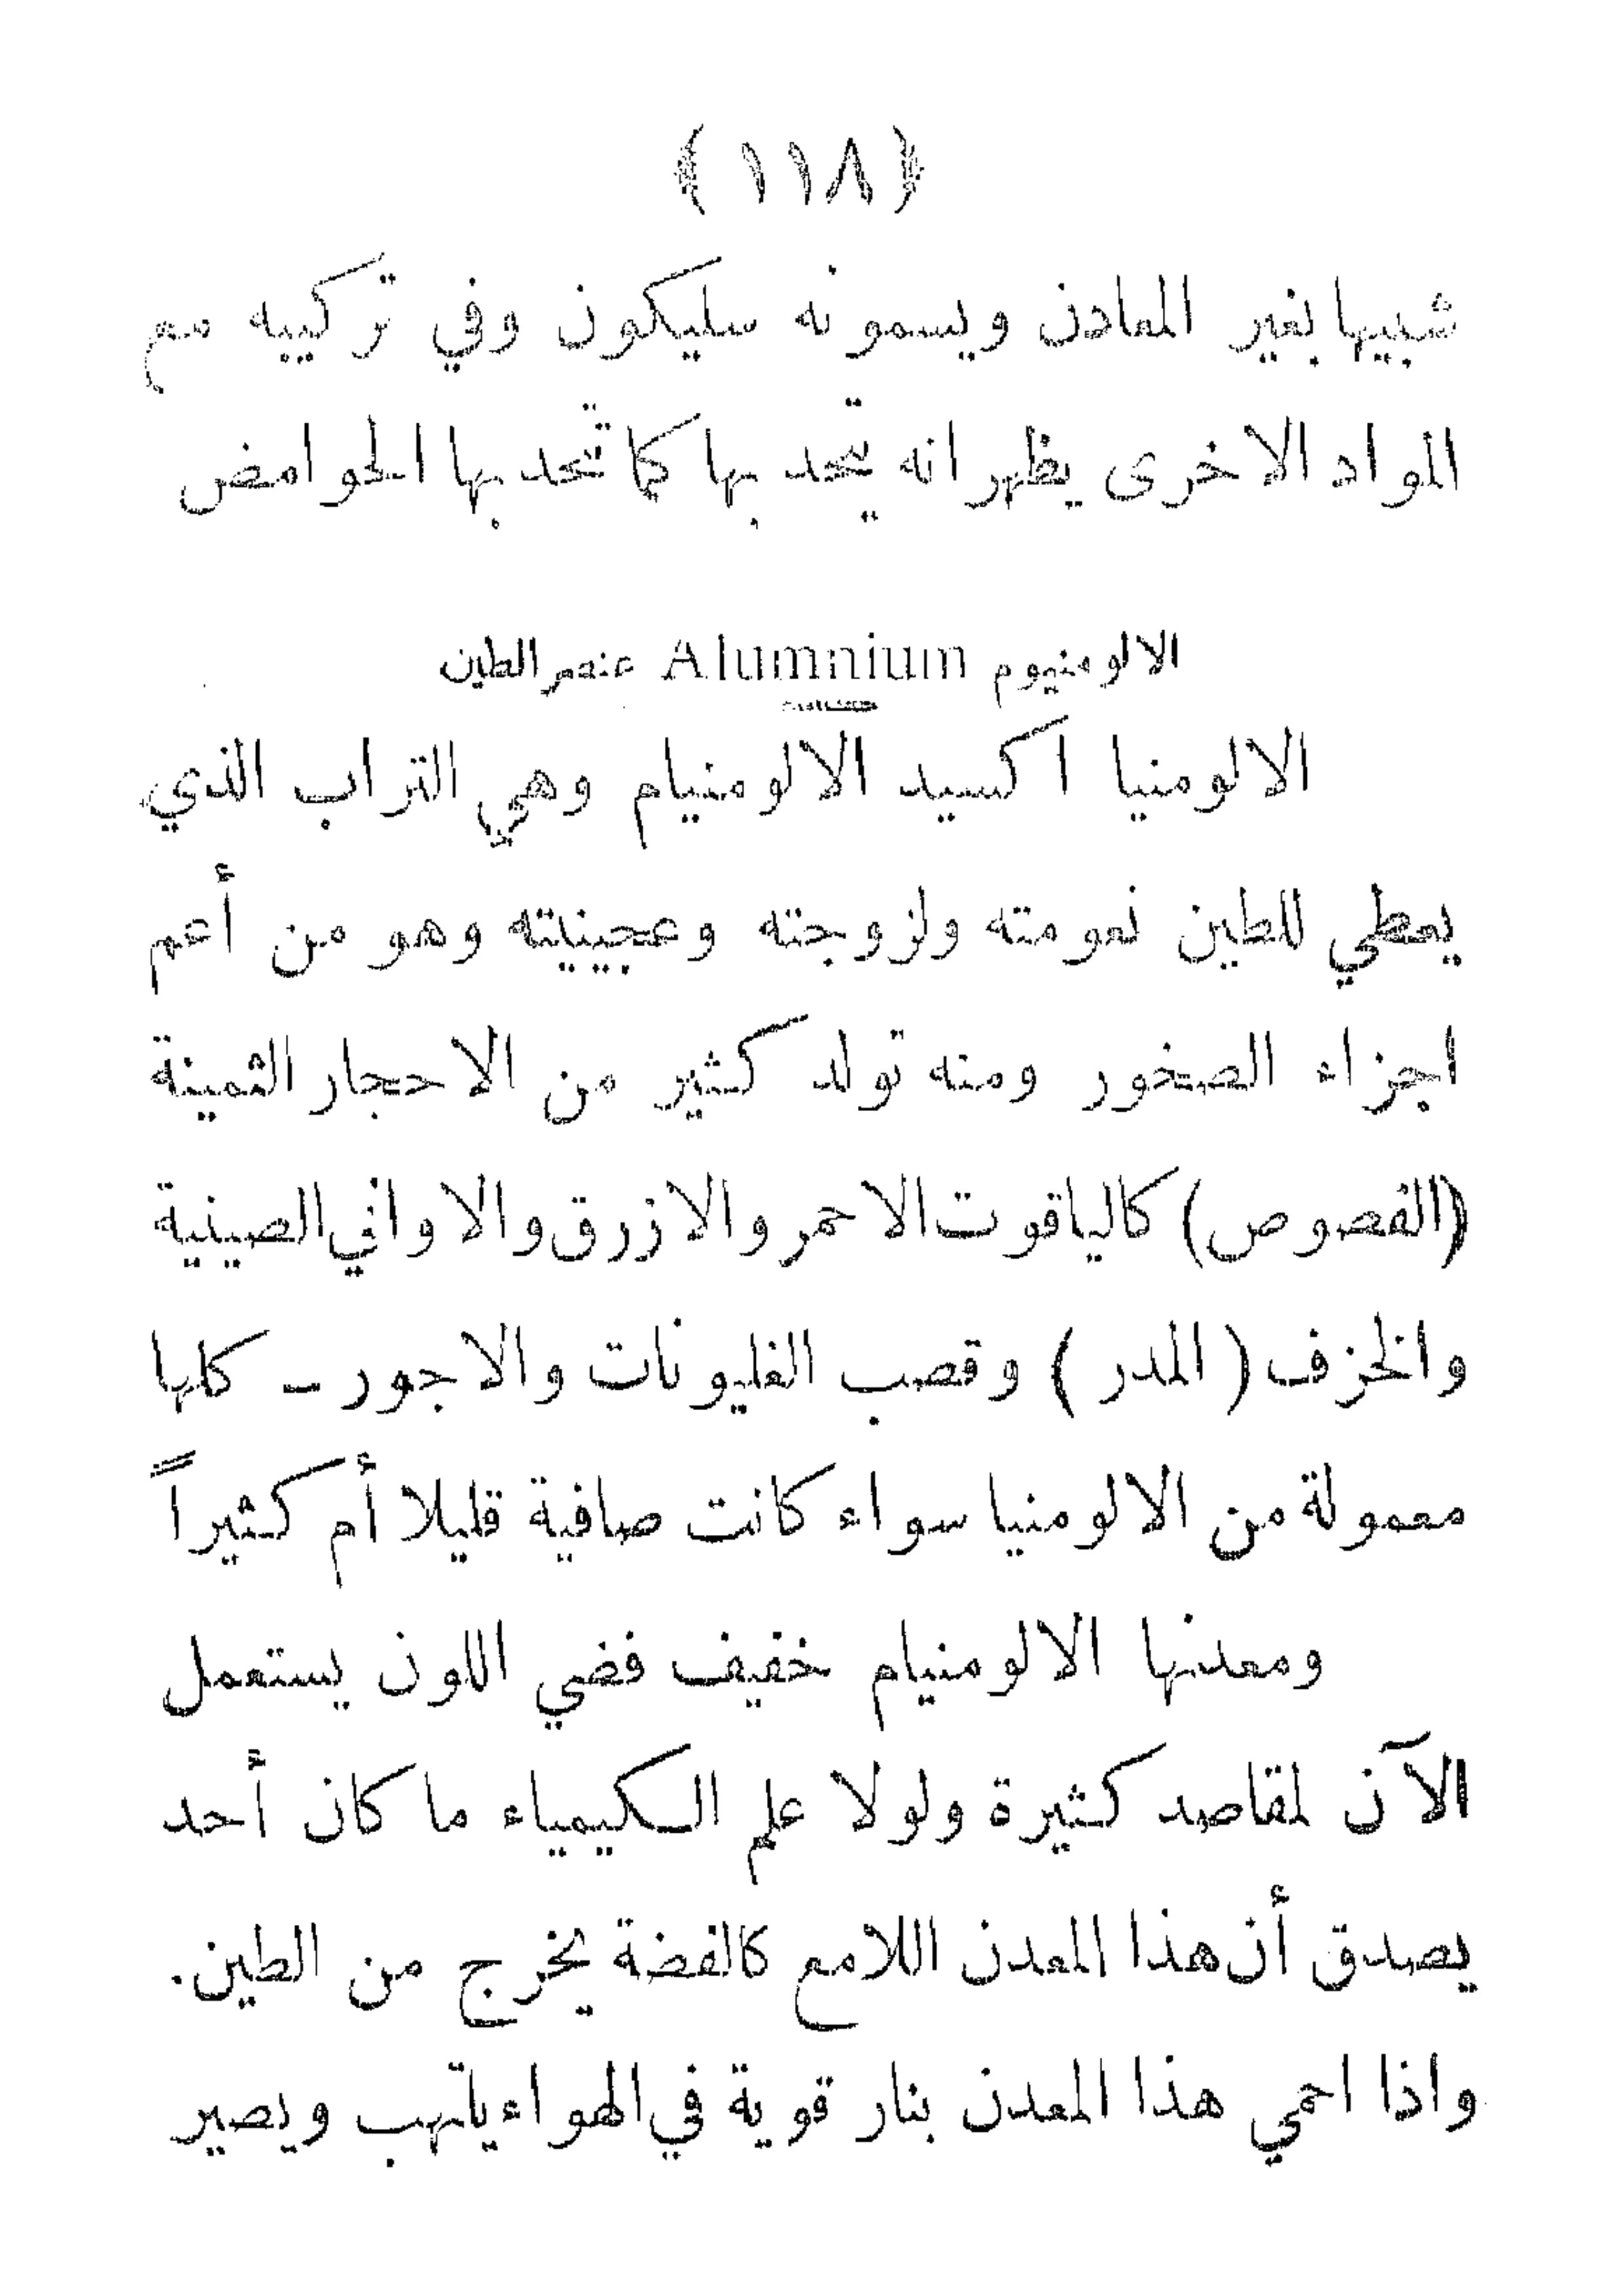 ﴿١١٨﴾
شبيها بغير المعادن ويسمونه سليكون وفي تركيبه مع
المواد الاخرى يظهر انه يتّحد بها كما تتّحد بها الحوامض
الالومنيوم Alumnium عنصر الطين
الالومنيا اكسيد الالومنيام وهي التراب الذي
يعطي للطين نعومته ولزوجته وعجينيته وهو من أعم
اجزاء الصخور ومنه تولد كثير من الاحجار الثمينة
(الفصوص) كالياقوت الاحمر والازرق والاواني الصينية
والخزف (المدر) وقصب الغليونات والاجور - كلها
معمولة من الالومنيا سواء كانت صافية قليلا أم كثيراً
ومعدنها الالومنيام خفيف فضي اللون يستعمل
الآن لمقاصد كثيرة ولولا علم الكيمياء ما كان أحد
يصدق أن هذا المعدن اللامع كالفضة يخرج من الطين.
واذا احمي هذا المعدن بنار قوية في الهواء يلتهب ويصير